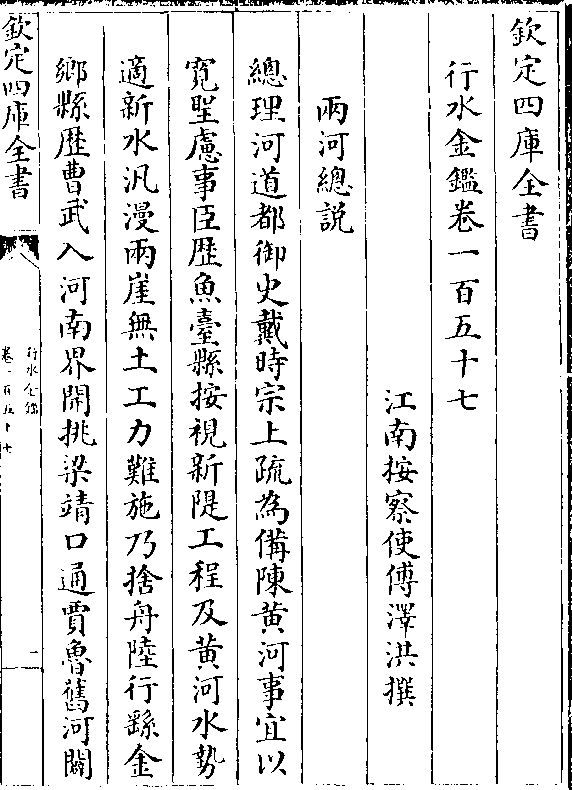 欽定四庫全書
行水金鑑卷一百五十七
江南按察使傅澤洪撰
兩河總説
總理河道都御史戴時宗上疏為備陳黄河事宜以
寛聖慮事臣歴魚臺縣按視新隄工程及黄河水勢
適新水汎漫兩崖無土工力難施乃捨舟陸行繇金
鄉縣歴曹武入河南界開挑梁靖口通賈魯舊河闗
欽定四庫全書
行水金鑑
卷一百五十七
一